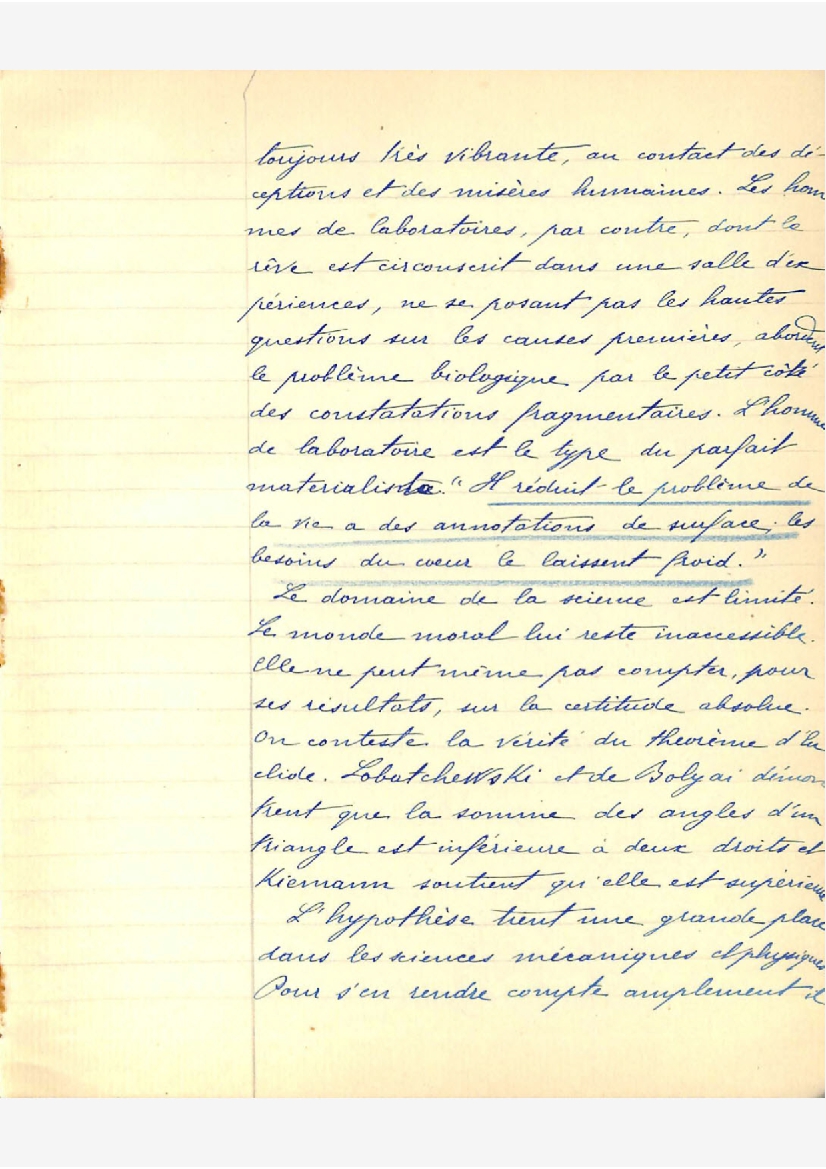 toujours très vibrante, au contact des dé-
ceptions et des misères humaines. Les hom
mes de laboratoires, par contre, dont le
rêve est circonscrit dans une salle d'ex
périences, ne se posant pas les hautes
questions sur les causes premières, abordent
le problème biologique par le petit côté
des constatations fragmentaires. L'homme
de laboratoire est le type du parfait
materialiste." Il réduit le problème de
la vie a des annotations de surface; les
besoins du cœur le laissent froid."
Le domaine de la science est limité.
Le monde moral lui reste inaccessible.
Elle ne peut même pas compter, pour
ses résultats, sur la certitude absolue.
On conteste la vérité du theorème d'Eu
clide. Lobatchewski et de Bolyai démon
trent que la somme des angles d'un
triangle est inférieure à deux droits et
Riemann soutient qu'elle est supérieure
L'hypothèse tient une grande place
dans les sciences mécaniques et physiques
Pour s'en rendre compte amplement il